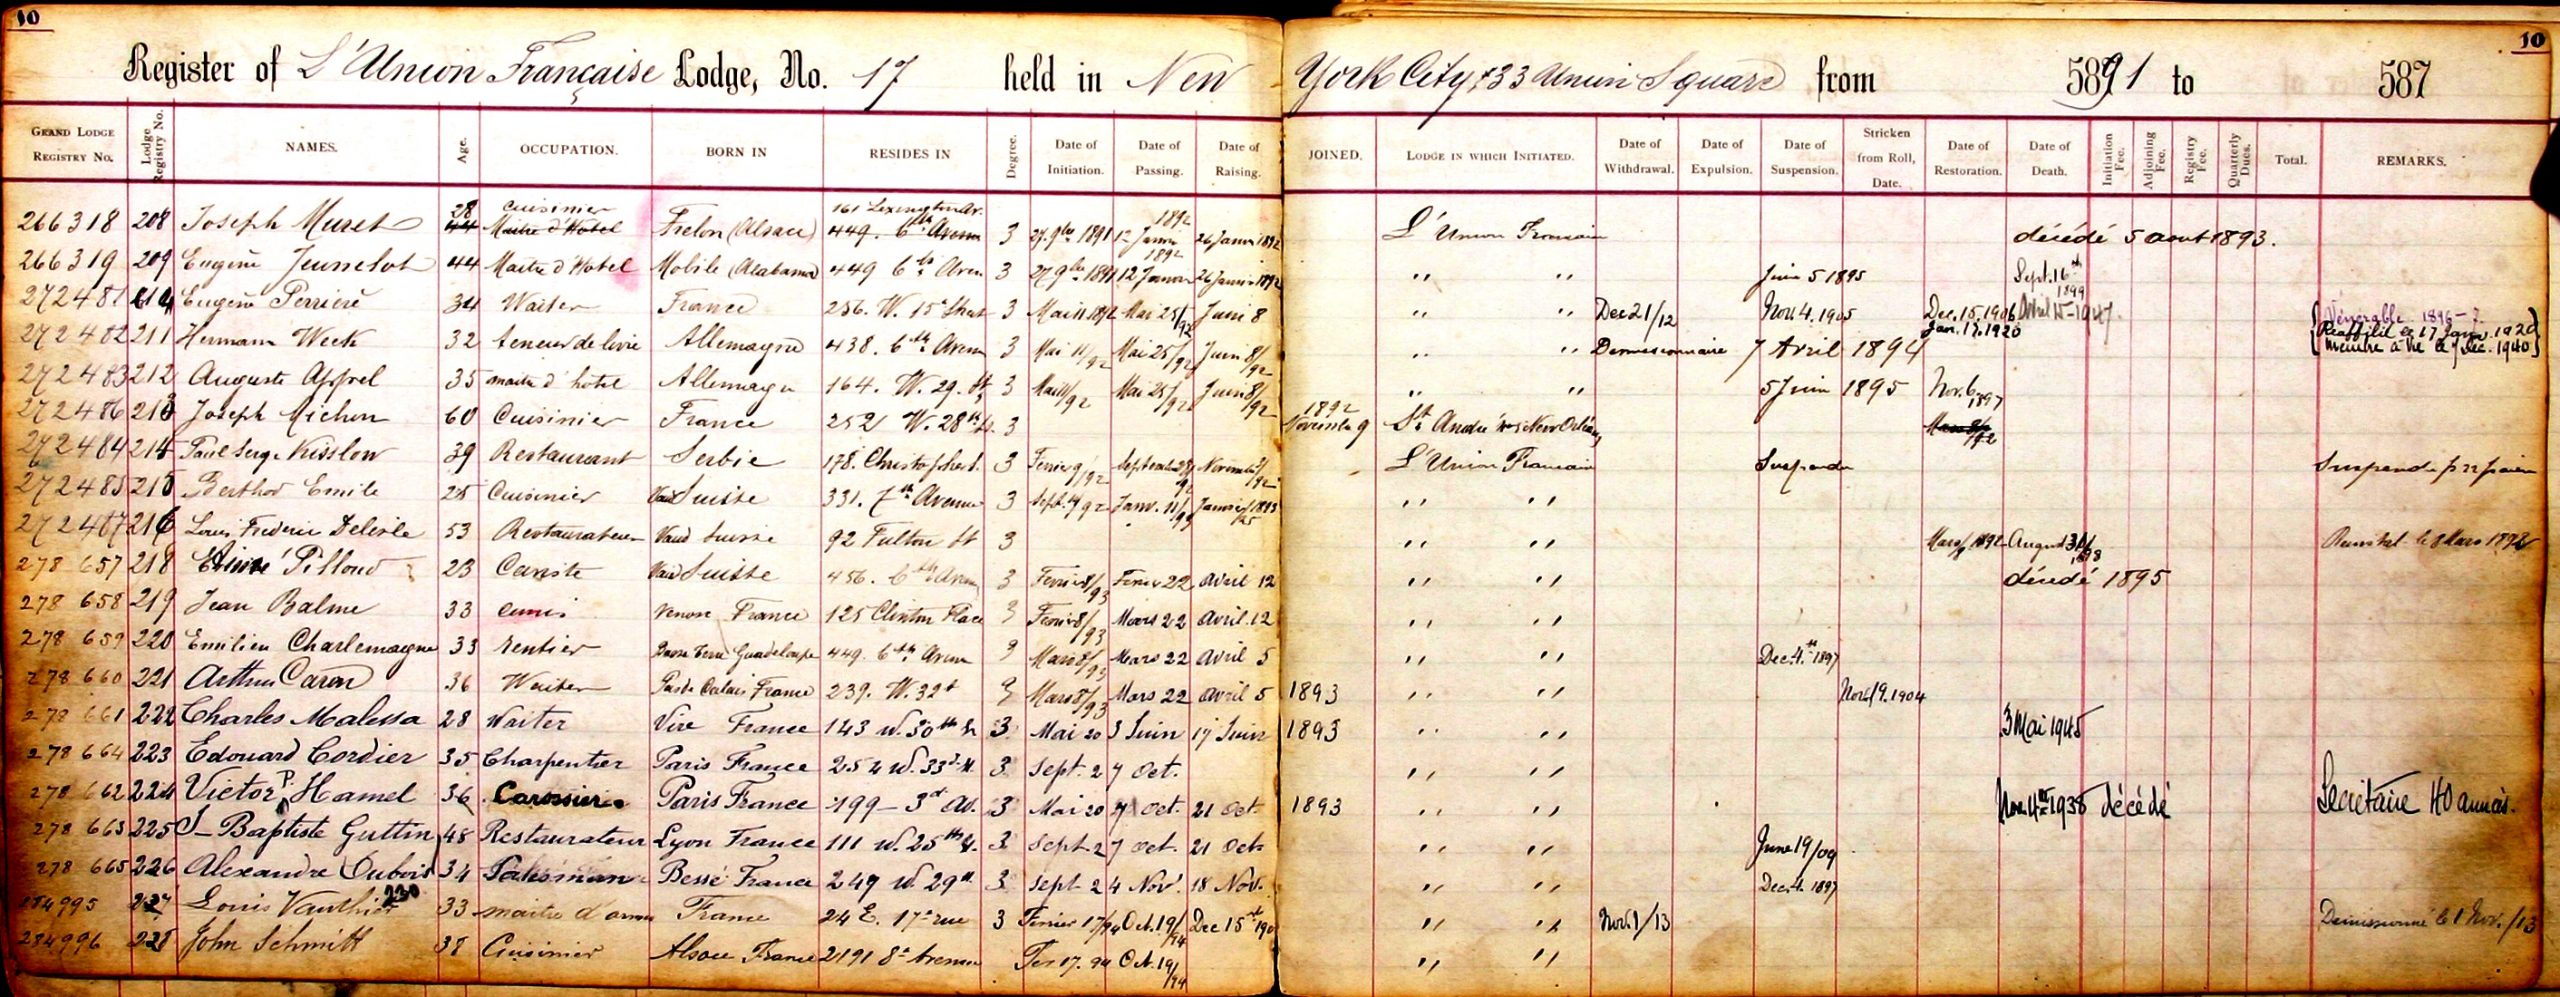 10 10
Register of L'Union Française Lodge, No. 17 held in New York City, 33 Union Square from 5891 to 587
GRAND LODGE REGISTRY NO. Lodge Registry No. NAMES. Age. OCCUPATION. BORN IN RESIDES IN Degree. Date of Initiation. Date of Passing. Date of Raising. JOINED. LODGE IN WHICH INITIATED. Date of Withdrawal. Date of Expulsion. Date of Suspension. Stricken from Roll, Date. Date of Restoration. Date of Death. Initiation Fee. Adjoining Fee. Registry Fee. Quarterly Dues. Total. REMARKS.
28 cuisinier 161 Lexington Av. 1892
266318 208 Joseph Muret 44 Maitre d'Hotel Frelon (Alsace) 449. 6th Avenue 3 27. 9bre 1891 12 Janvier 26 Janvier 1892 L'Union Francaise décédé 5 aout 1893.
266319 209 Eugène Jeusselot 44 Maitre d'Hotel Mobile (Alabama) 449 6th Aven 3 27 9bre 1891 12 Janvier 1892 26 Janvier 1892 " " Juin 5 1895 Sept. 16th 1899
272481 Eugène Perrière 34 Waiter France 256. W. 15th Street 3 Mai 11 1892 Mai 25/92 Juin 8 " " Dec 21/12 Nov. 4. 1905 Dec. 15. 1906 Jan. 17. 1920 Avril 15-1947. Vénérable 1896-7 Réaffilié le 17 Janv. 1920 membre à vie le 7 Dec. 1940
272482 211 Hermann Week 32 teneur de livre Allemagne 438. 6th Avenu 3 Mai 11/92 Mai 25/92 Juin 8/92 " " Demissionnaire 7 Avril 1894
272483 212 Auguste Appel 35 maitre d'hotel Allemagne 164. W. 29. St 3 Mai 11/92 Mai 25/92 Juin 8/92 " " 5 Juin 1895 Nov. 6 1897
272486 213 Joseph Michon 60 Cuisinier France 252 W. 28th St. 3 1892 Novembre 9 St André No 5 New Orléans
272484 214 Paul Serge Kisslow 39 Restaurant Serbie 178. Christopher St. 3 Fevrier 9/92 L'Union Francaise Suspendu
272485 215 Berthod Emile 25 Cuisinier Vaud Suisse 331. 7th Avenue 3 Sept. 14/92 Janv. 11/93 Janvier 25/1893 " "
272487 216 Louis Frederic Delisle 53 Restaurateur Vaud Suisse 92 Fulton St 3 " " Mars 1892 August 31/98 le 8 Mars 1892
278 657 218 Pilloud 23 Vaud Suisse 456. 6th Aven 3 Fevrier 8/93 Fevrier 22 Avril 12 " " décédé 1895
278 658 219 Jean Balme 33 France 125 Clinton Place 3 Fevrier 8/93 Mars 22 Avril. 12 " "
278 659 220 Emilien Charlemagne 33 rentier Basse Terre Guadeloupe 449. 6th Avenu 3 Mars 8/93 Mars 22 Avril 5 " " Dec. 4th 1897
278 660 221 Arthur Caron 36 Waiter Pas de Calais France 239. W. 32d 3 Mars 8/93 Mars 22 Avril 5 1893 " " Nov. 19. 1904
278 661 222 Charles Malessa 28 Waiter Vire France 143 W. 30th St 3 Mai 20 3 Juin 17 Juin 1893 " " 3 Mai 1945
278 664 223 Edouard Cordier 35 Charpentier Paris France 254 W. 33d St. 3 Sept. 2 7 Oct. " "
278 662 224 Victor P. Hamel 36 Carossier Paris France 199 - 3rd Av. 3 Mai 20 7 Oct. 21 Oct. 1893 " " Nov. 4th 1938 décédé Secrétaire 40 années.
278 663 225 J-Baptiste Guttin 48 Restaurateur Lyon France 111 W. 25th St. 3 Sept. 2 7 Oct. 21 Oct. " " June 19/09
278 665 226 Alexandre Dubois 34 Salesman Bessé France 247 W. 29th 3 Sept 2 4 Nov. 18 Nov. " " Dec. 4. 1897
284995 227 Louis Vauthier 230 33 maitre d'armes France 24 E. 17e rue 3 Fevrier 17/94 Oct. 19/94 Dec 15 " " Nov. 1/13 Demissionné le 1 Nov. /13
284996 228 John Schmitt 38 Cuisinier Alsace France 2191 8e Avenue Fev 17. 94 Oct. 19/94 " "